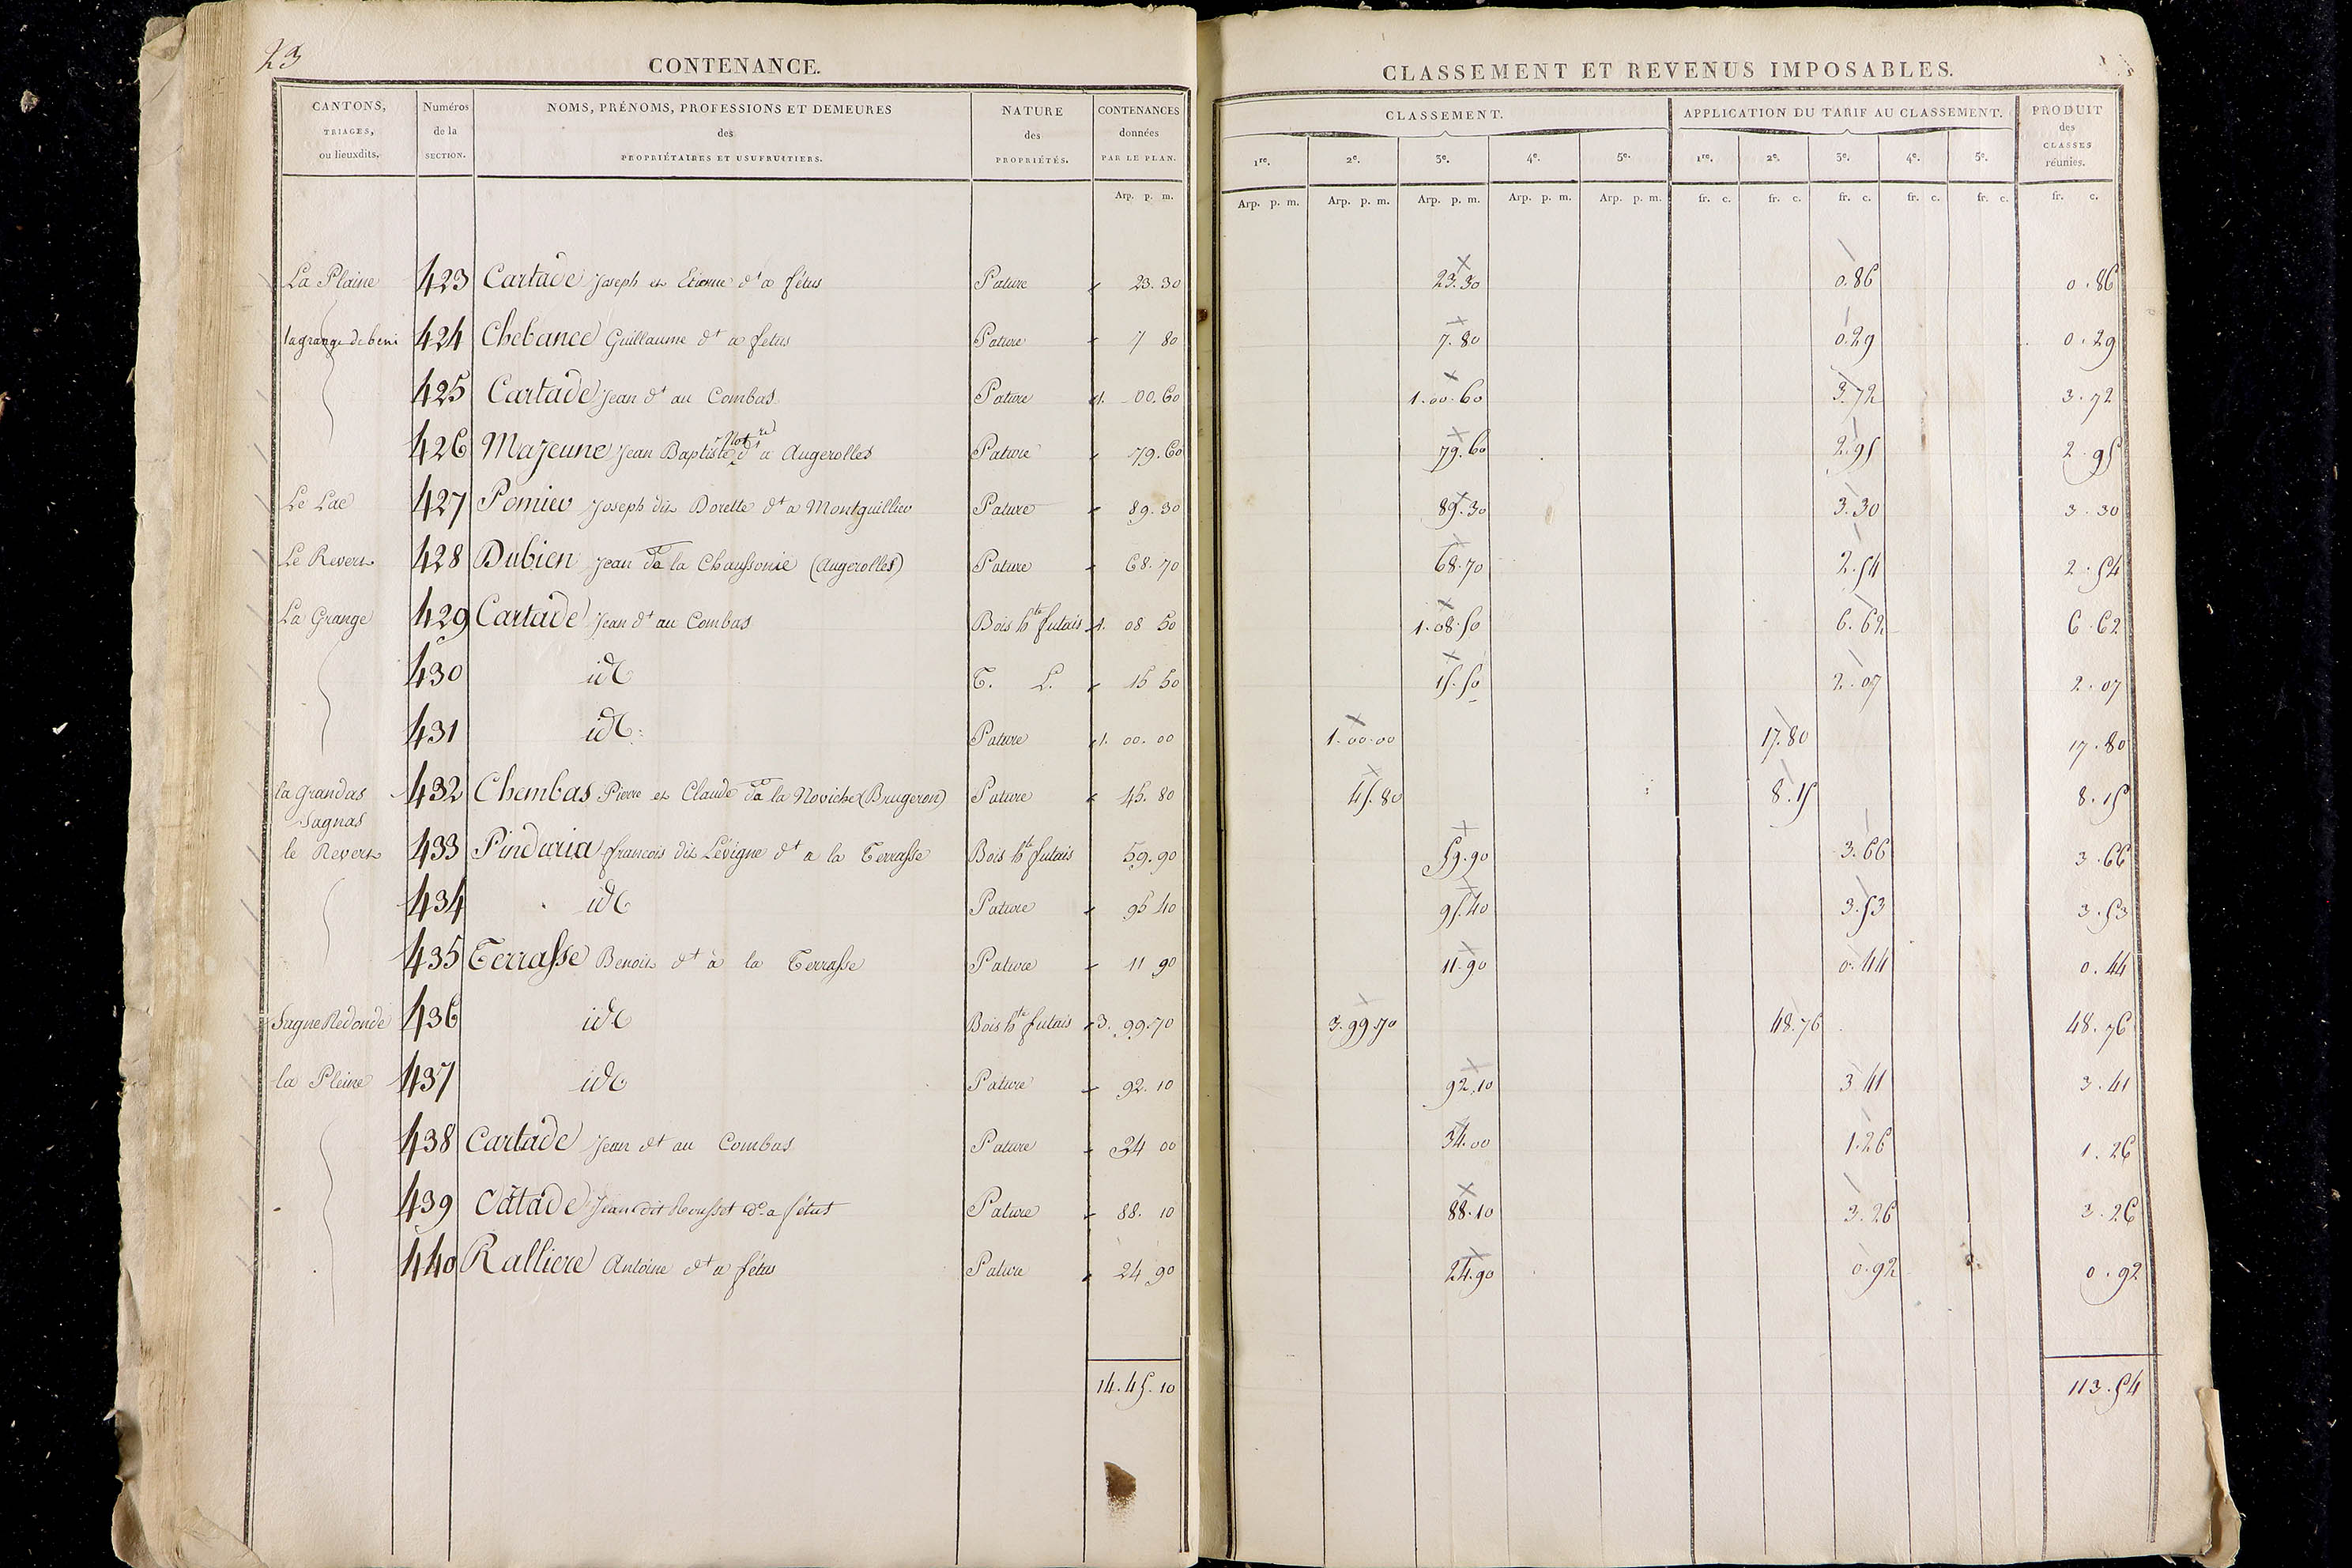 23
CONTENANCE.
CLASSEMENT ET REVENUS IMPOSABLES.
CANTONS, TRIAGES, ou lieuxdits. Numéros de la SECTION. NOMS, PRÉNOMS, PROFESSIONS ET DEMEURES des PROPRIÉTAIRES ET USUFRUITIERS. NATURE des PROPRIÉTÉS. CONTENANCES données PAR LE PLAN.
CLASSEMENT. APPLICATION DU TARIF AU CLASSEMENT. PRODUIT des CLASSES réunies.
1re. 2e. 3e. 4e. 5e. 1re. 2e. 3e. 4e. 5e.
Arp. p. m. Arp. p. m. Arp. p. m. Arp. p. m. Arp. p. m. Arp. p. m. fr. c. fr. c. fr. c. fr. c. fr. c. fr. c.
La Plaine 423 Cartade Joseph et Etienne dt a fétus Pature 23.30 23.30 0.86 0.86
lagrange de beni 424 Chebance Guillaume dt a fetus Pature 7 80 7.80 0.29 0.29
425 Cartade Jean dt au Combas Pature 1. 00.60 1.00.60 3.72 3.72
426 Majeune Jean Baptiste Notre dt a Augerolles Pature 79.60 79.60 2.95 2.95
Le Lac 427 Pomier Joseph dit Dorette dt a Montguillier Pature 89.30 89.30 3.30 3.30
Le Revers 428 Dubien Jean de la Chaussonie (Augerolles) Pature 68.70 68.70 2.54 2.54
La Grange 429 Cartade Jean dt au Combas Bois hte futais 1. 08 50 1.08.50 6.62 6.62
430 id T. L. 15 50 15.50 2.07 2.07
431 id: Pature 1. 00.00 1.00.00 17.80 17.80
la Grandas Sagnas 432 Chembas Pierre et Claude de la Noviche (Brugeron) Pature 45.80 45.80 8.15 8.15
le Revers 433 Pindaria francois dit Lévigne dt a la Terrasse Bois hte futais 59.90 59.90 3.66 3.66
434 id Pature 95 40 95.40 3.53 3.53
435 Terrasse Benoit dt à la Terrasse Pature 11 90 11.90 0.44 0.44
Sagne Redonde 436 id Bois hte futais 3. 99.70 3.99.70 48.76 48.76
la Pleine 437 id Pature 92.10 92.10 3.41 3.41
438 Cartade Jean dt au Combas Pature 34 00 34.00 1.26 1.26
439 Catade Jean dit Rousset dt a fétus Pature 88.10 88.10 3.26 3.26
440 Ralliere Antoine dt a fétus Pature 24 90 24.90 0.92 0.92
14.45.10 113.54